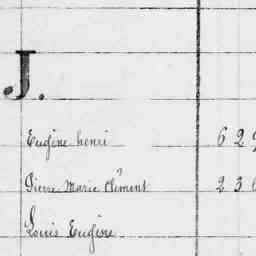 J.
Eugène henri 62
Pierre Marie Clément 23
Louis Eugène